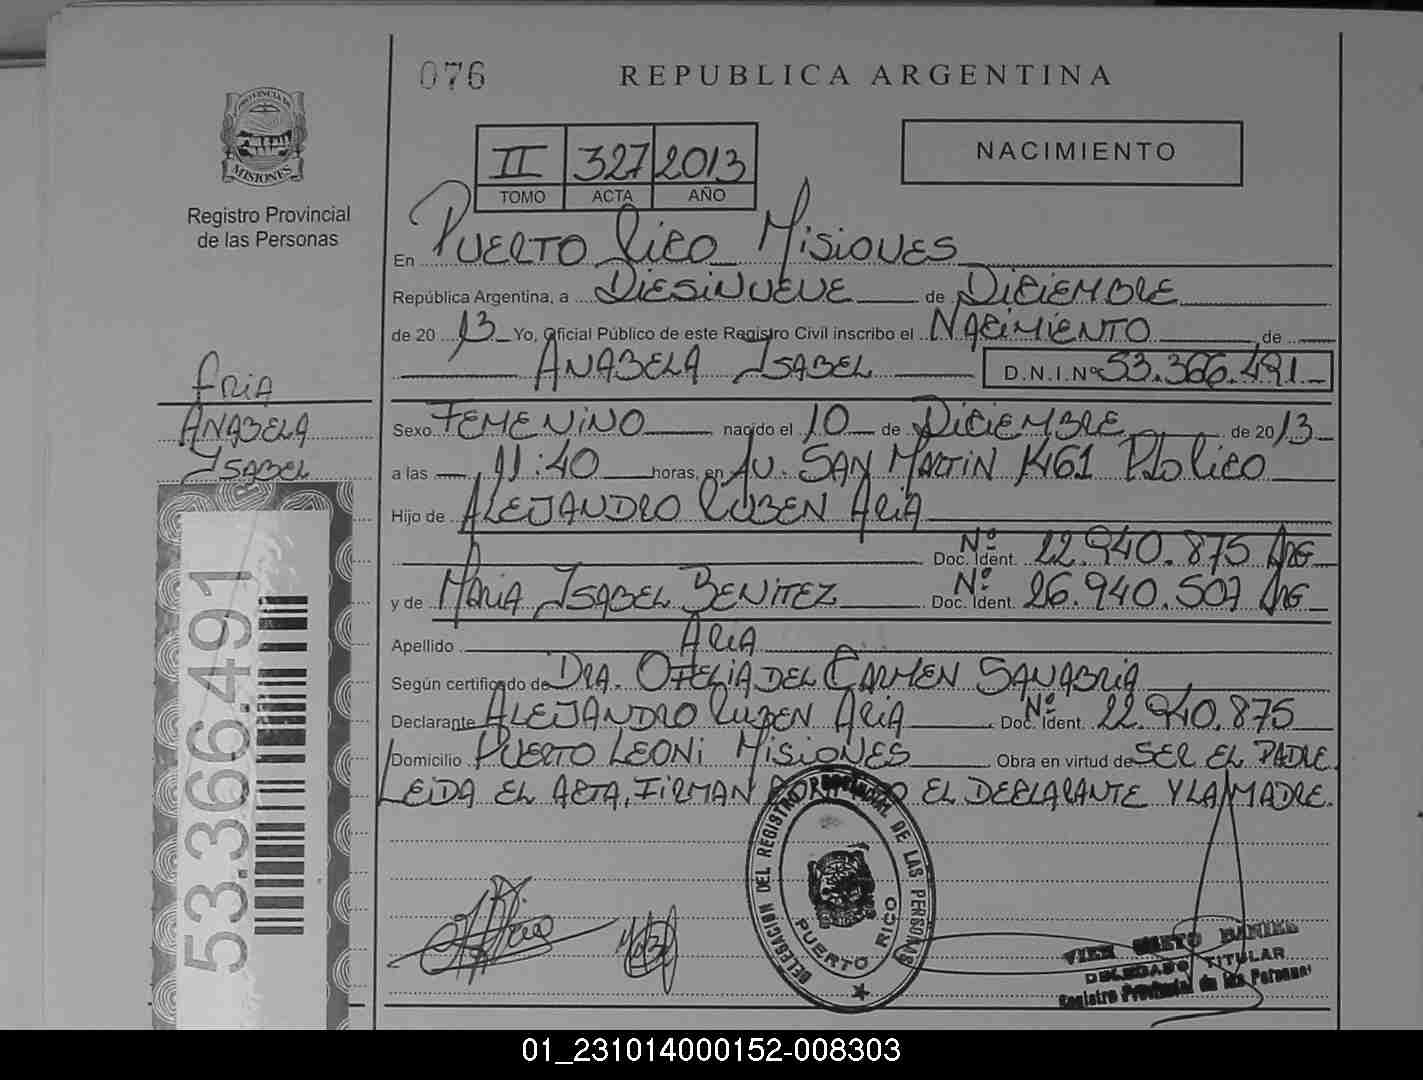 076
REPUBLICA ARGENTINA
PROVINCIA DE
MISIONES
Registro Provincial
de las Personas
II 327 2013
TOMO ACTA AÑO
NACIMIENTO
En PUERTO RICO MISIONES
República Argentina, a DIESINUEVE de DICIEMBRE
de 20 13 Yo, Oficial Público de este Registro Civil inscribo el NACIMIENTO de
ANABELA ISABEL D.N.I.Nº 53.366.491
ARIA
ANABELA
ISABEL
Sexo FEMENINO nacido el 10 de DICIEMBRE de 20 13
a las 11:40 horas, en AV. SAN MARTIN Pto Rico
Hijo de ALEJANDRO RUBEN ARIA
Doc. Ident. Nº 22.940.875 ARG
y de MARIA ISABEL BENITEZ Doc. Ident. Nº 26.940.507 ARG
Apellido ARIA
Según certificado de DRA. OFELIA DEL CARMEN SANABRIA
Declarante ALEJANDRO RUBEN ARIA Doc. Ident. Nº 22.940.875
Domicilio PUERTO LEONI MISIONES Obra en virtud de SER EL PADRE
LEIDA EL ACTA, FIRMAN EL DECLARANTE Y LA MADRE.
53.366.491
DELEGACION DEL REGISTRO PROVINCIAL DE LAS PERSONAS
PUERTO RICO
DELEGADO TITULAR
Registro Provincial de las Personas
01_231014000152-008303